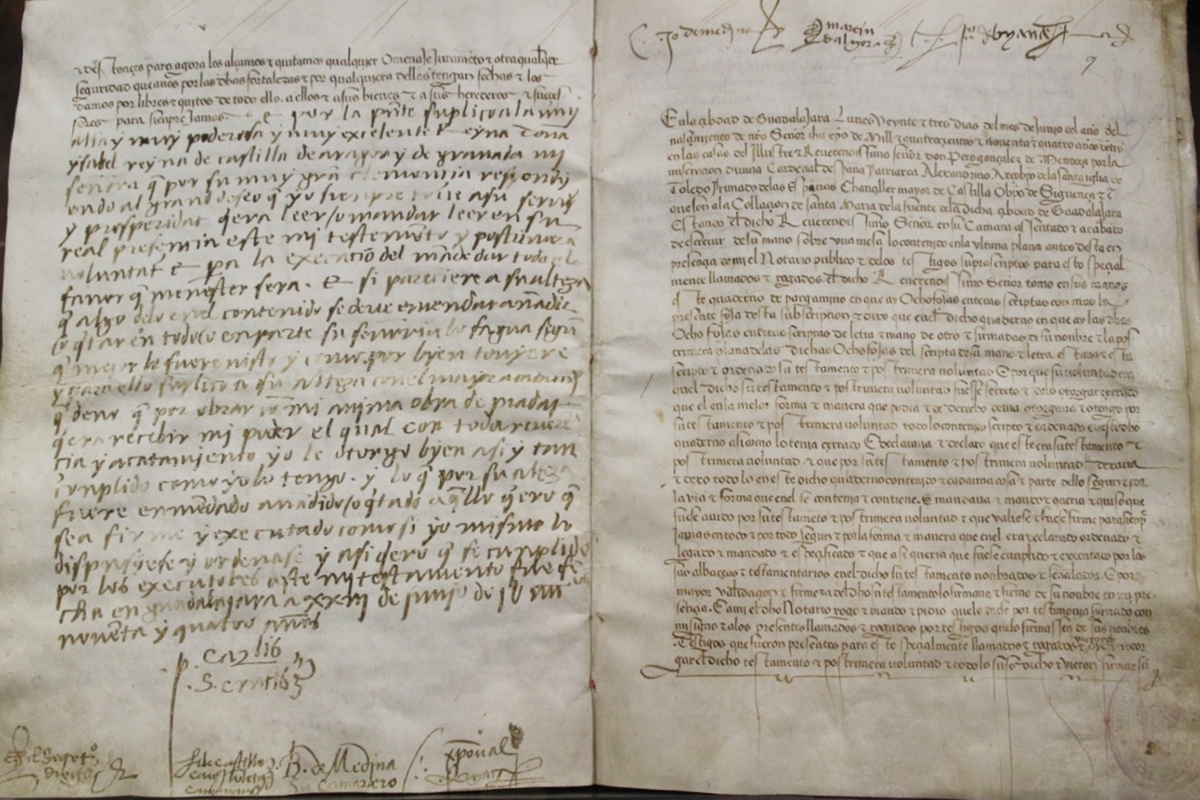 seguridad que a nos por las dichas fortalezas & por qualquiera dellas tengan fechas & les
damos por libres & quitos de todo ello a ellos & a sus bienes & a sus herederos &
para siempre jamas & por la pnte suplico a la muy
alta y muy poderosa y muy excelente Reyna dona
ysabel reyna de castilla de aragon y de granada mi
señora q por su muy grã clemencia respondi
endo al grand deseo q yo siempre tove a su servi
y prosperidat quera leer o mandar leer en su
real presencia este mi testamento y postrimera
voluntat & pa la execucion del mandar dar todo el
favor q menester sera. & si pareciere a su alteza
q algo delo enel contenido se deve emendar añadir
o qtar en todo o en parte su señoria lo faga segũ
q mejor lo fuere visto y como por byen touyere
y para ello suplico a su alteza con el mayor acatami
q devo q por obrar cõ mi anima obra de piadat
quera recebir mi poder el qual con toda reveren
cia y acatamiento yo le otorgo byen asi y tan
cumplido como yo lo tengo. y lo q por su alteza
fuere enmendado añadido o qtado aqllo qero q
sea firme y executado como si yo mismo lo
dispusiese y ordenase y asi qero q se cumpla
por los executores deste mi testamento fue fe
cha en guadalajara a xxiii de junio de
noventa y quatro años
P. Carlis
S. Crucis
B. de Medina
Su Camarero
xpoual
Jo de medina
martin
En la çibdad de Guadalajara Lunes veynte & tres dias del mes de Junio del año del
nasçimiento de nro Señor ihu xpo de Mill & quatroçientos & noventa & quatro años dentro
en las casas del Illustre & Reverendissimo señor don Pero gonçalez de Mendoça por la
miseracion divina Cardenal de España Patriarca Alexandrino Arçobpo de la santa yglia de
Toledo Primado de las Españas Changiller mayor de Castilla Obpo de Siguença & c
que son a la Collaçion de santa Maria de la fuente de la dicha çibdad de Guadalajara
Estando el dicho Reverendissimo Señor en su Camara asentado & acabado
de escrevir de su mano sobre una mesa lo contenido en la ultima plana antes desta en
presençia de mi el Notario publico & delos testigos suprascriptos para esto special
mente llamados & rogados el dicho Reverendissimo Señor tomo en sus manos
este quaderno de pargamino en que ay Ocho fojas enteras scriptas con mas la
presente desta subscripcion & dixo que en el dicho quaderno en que ay las dichas
Ocho fojas enteras scriptas de letra & mano de otro & firmadas de su nombre & la pos
trimera plana de las dichas Ocho fojas del scripta de su mano & letra estava & esta
scripto & ordenado su testamento & postrimera voluntad E porque su voluntad era
que el dicho su testamento & postrimera voluntad fuese secreto & delo otorgar çerrado
que el en la mejor forma & manera que podia & de derecho devia otorgava & otorgo por
su testamento & postrimera voluntad todo lo contenido scripto & ordenado en el dicho
quaderno asi como lo tenia çerrado E declarava & declaro que este era su testamento &
postrimera voluntad & que por su testamento & postrimera voluntad dexava
& dexo todo lo en este dicho quaderno contenido & cada una cosa & parte dello segun & por
la via & forma que en el se contenia & contiene. E mandava & mando & queria & quiso que
fuese avido por su testamento & postrimera voluntad & que valiese & fuese firme para siempre
jamas en todo & por todo segun & por la forma & manera que en el era declarado ordenado &
legado & mandado & espeçificado & que asi queria que fuese cumplido & executado por los
sus albaçeas & testamentarios en el dicho su testamento nonbrados & señalados. E por
mayor validaçion & firmeza del dicho su testamento lo firmava & firmo de su nombre en mi pre
sençia. E a mi el dicho Notario rogo & mando & pidio que lo diese por testimonio signado con
mi signo & a los presentes llamados & rogados por testigos que lo firmassen de sus nonbres
Testigos que fueron presentes para esto specialmente llamados & rogados
que el dicho testamento & postrimera voluntad & todo lo suso dicho & vieron firmar su